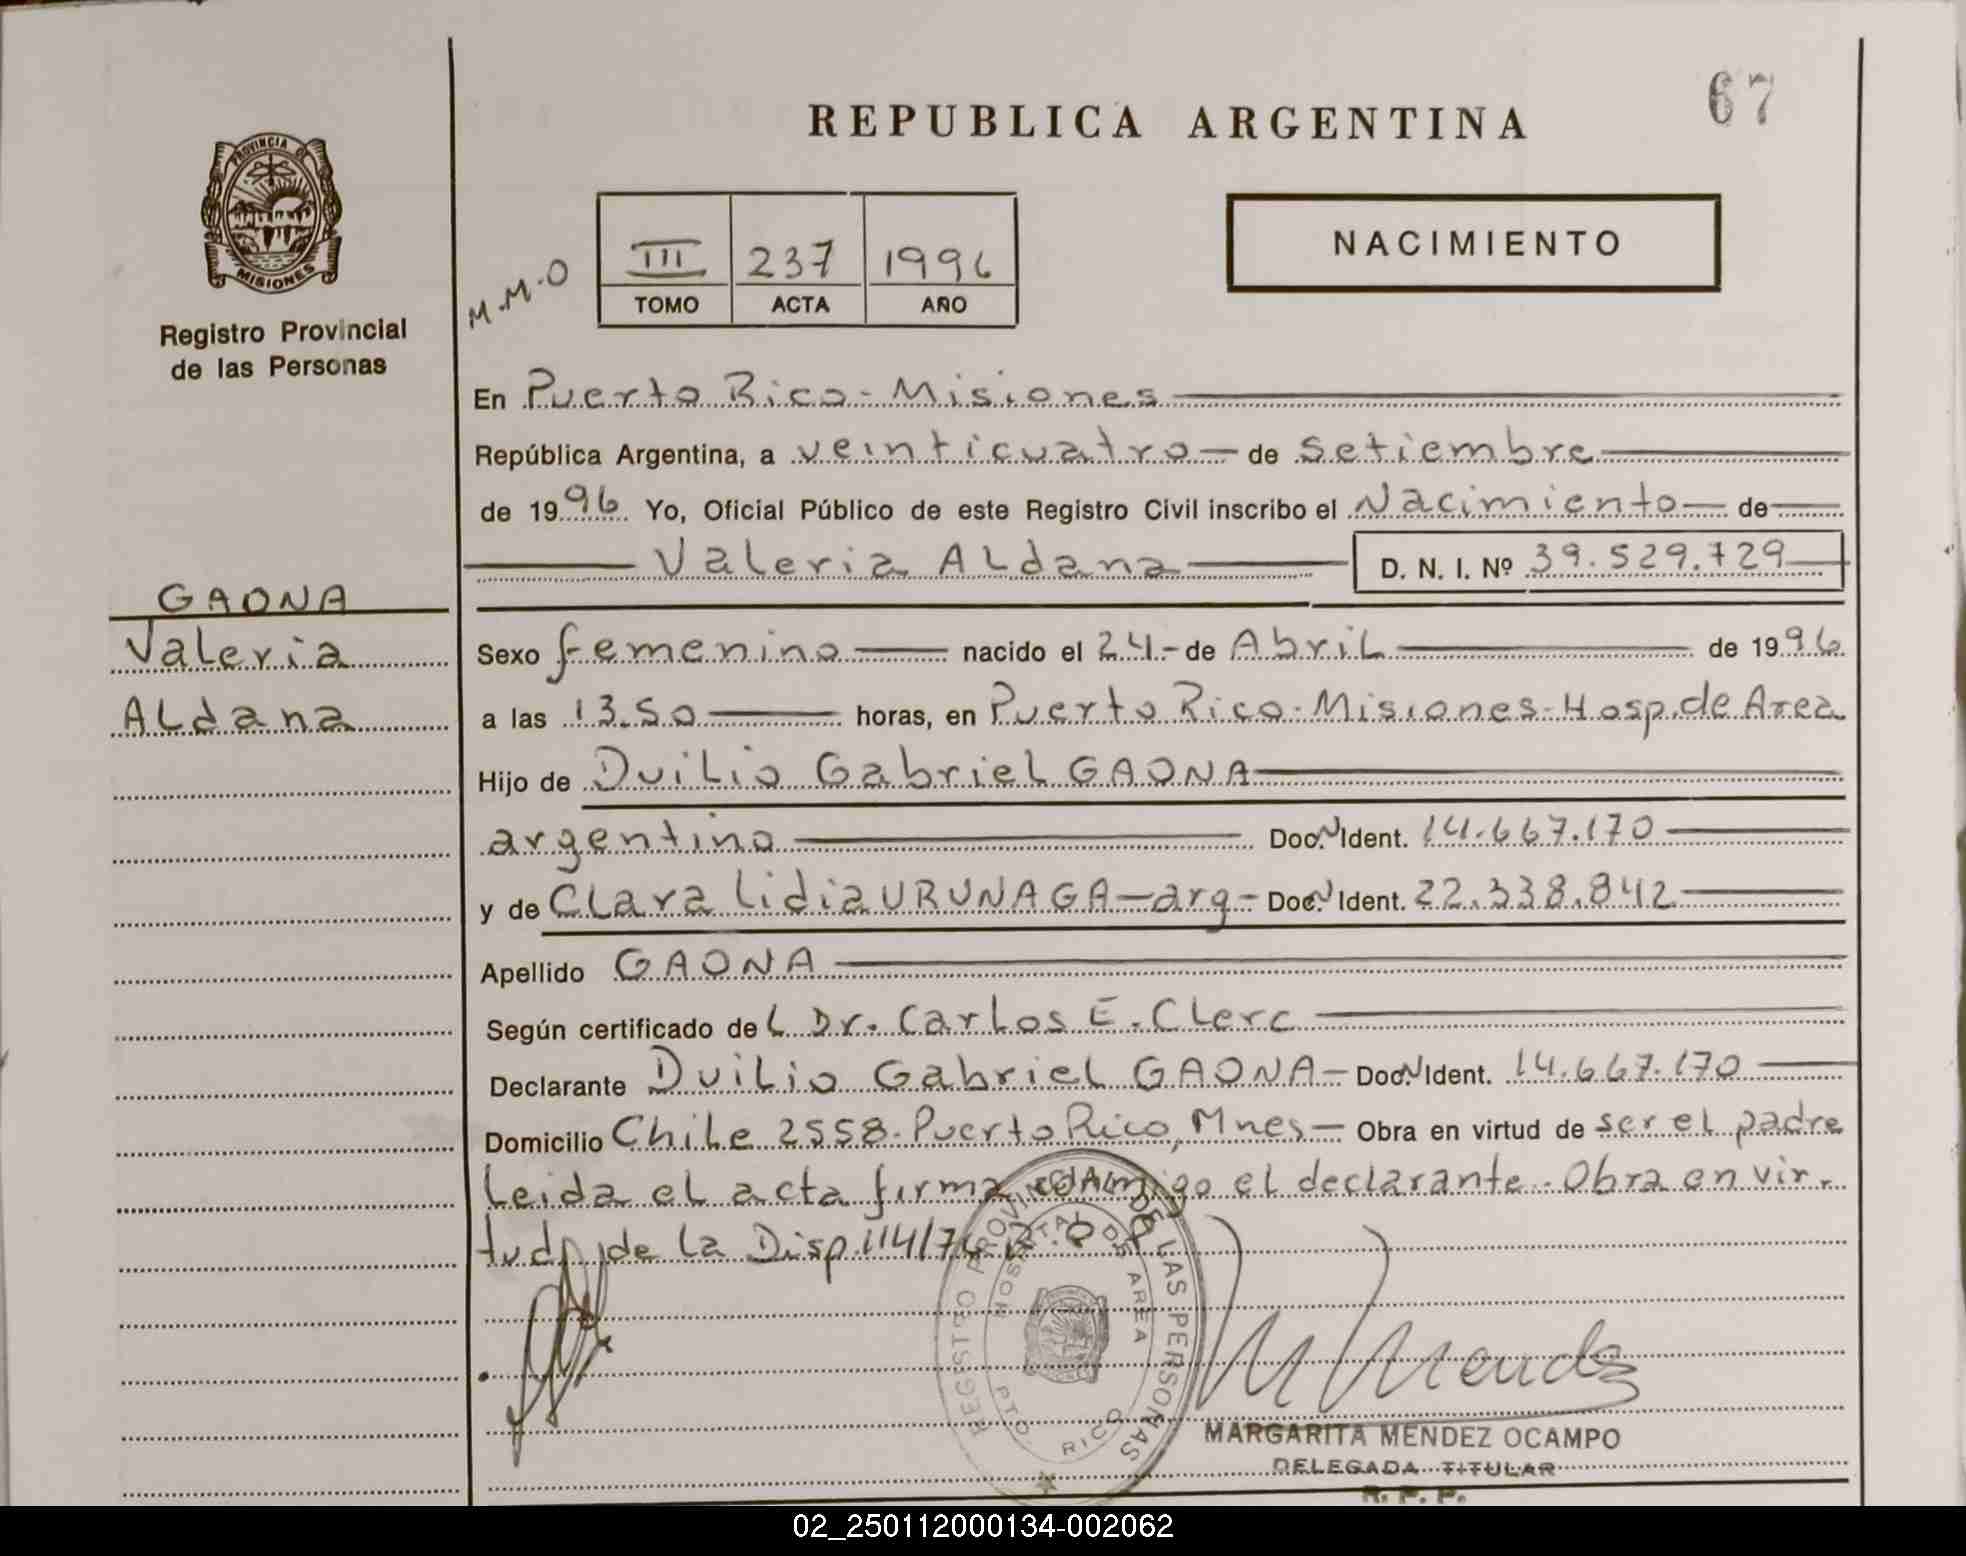 67
REPUBLICA ARGENTINA
PROVINCIA DE
MISIONES
Registro Provincial
de las Personas
NACIMIENTO
M.M.O
III 237 1996
TOMO ACTA AÑO
En Puerto Rico - Misiones
República Argentina, a veinticuatro de setiembre
de 1996 Yo, Oficial Público de este Registro Civil inscribo el Nacimiento de
Valeria ALdana D. N. I. Nº 39.529.729
GAONA
Valeria
ALdana
Sexo femenino nacido el 24.- de AbriL de 1996
a las 13.50 horas, en Puerto Rico - Misiones - Hosp. de Area
Hijo de DuiLio GabrieL GAONA
argentino Doc. N Ident. 14.667.170
y de CLara Lidia URUNAGA - arg - Doc. N Ident. 22.338.842
Apellido GAONA
Según certificado deL Dr. CarLos E. CLerc
Declarante DuiLio GabrieL GAONA - Doc. N Ident. 14.667.170
Domicilio ChiLe 2558 - Puerto Rico, Mnes - Obra en virtud de ser eL padre
Leida eL acta firma conmigo eL declarante. Obra en vir-
tud de La Disp. 114/76
REGISTRO PROVINCIAL DE LAS PERSONAS
HOSPITAL DE AREA
PTO. RICO
M Mendez
MARGARITA MENDEZ OCAMPO
DELEGADA TITULAR
R. P. P.
02_250112000134-002062